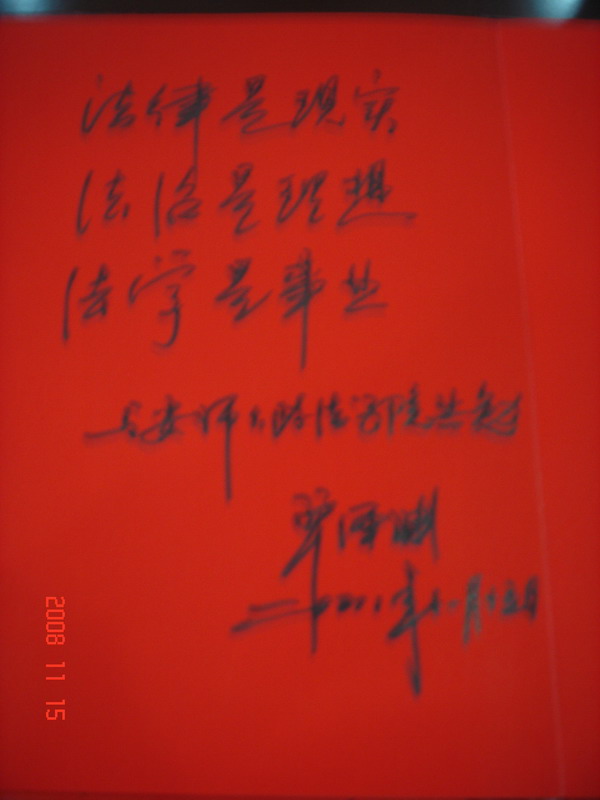 法律是现实
法治是理想
法学是事业
与安师大政法学院共勉
二〇〇八年十一月十五日
2008 11 15